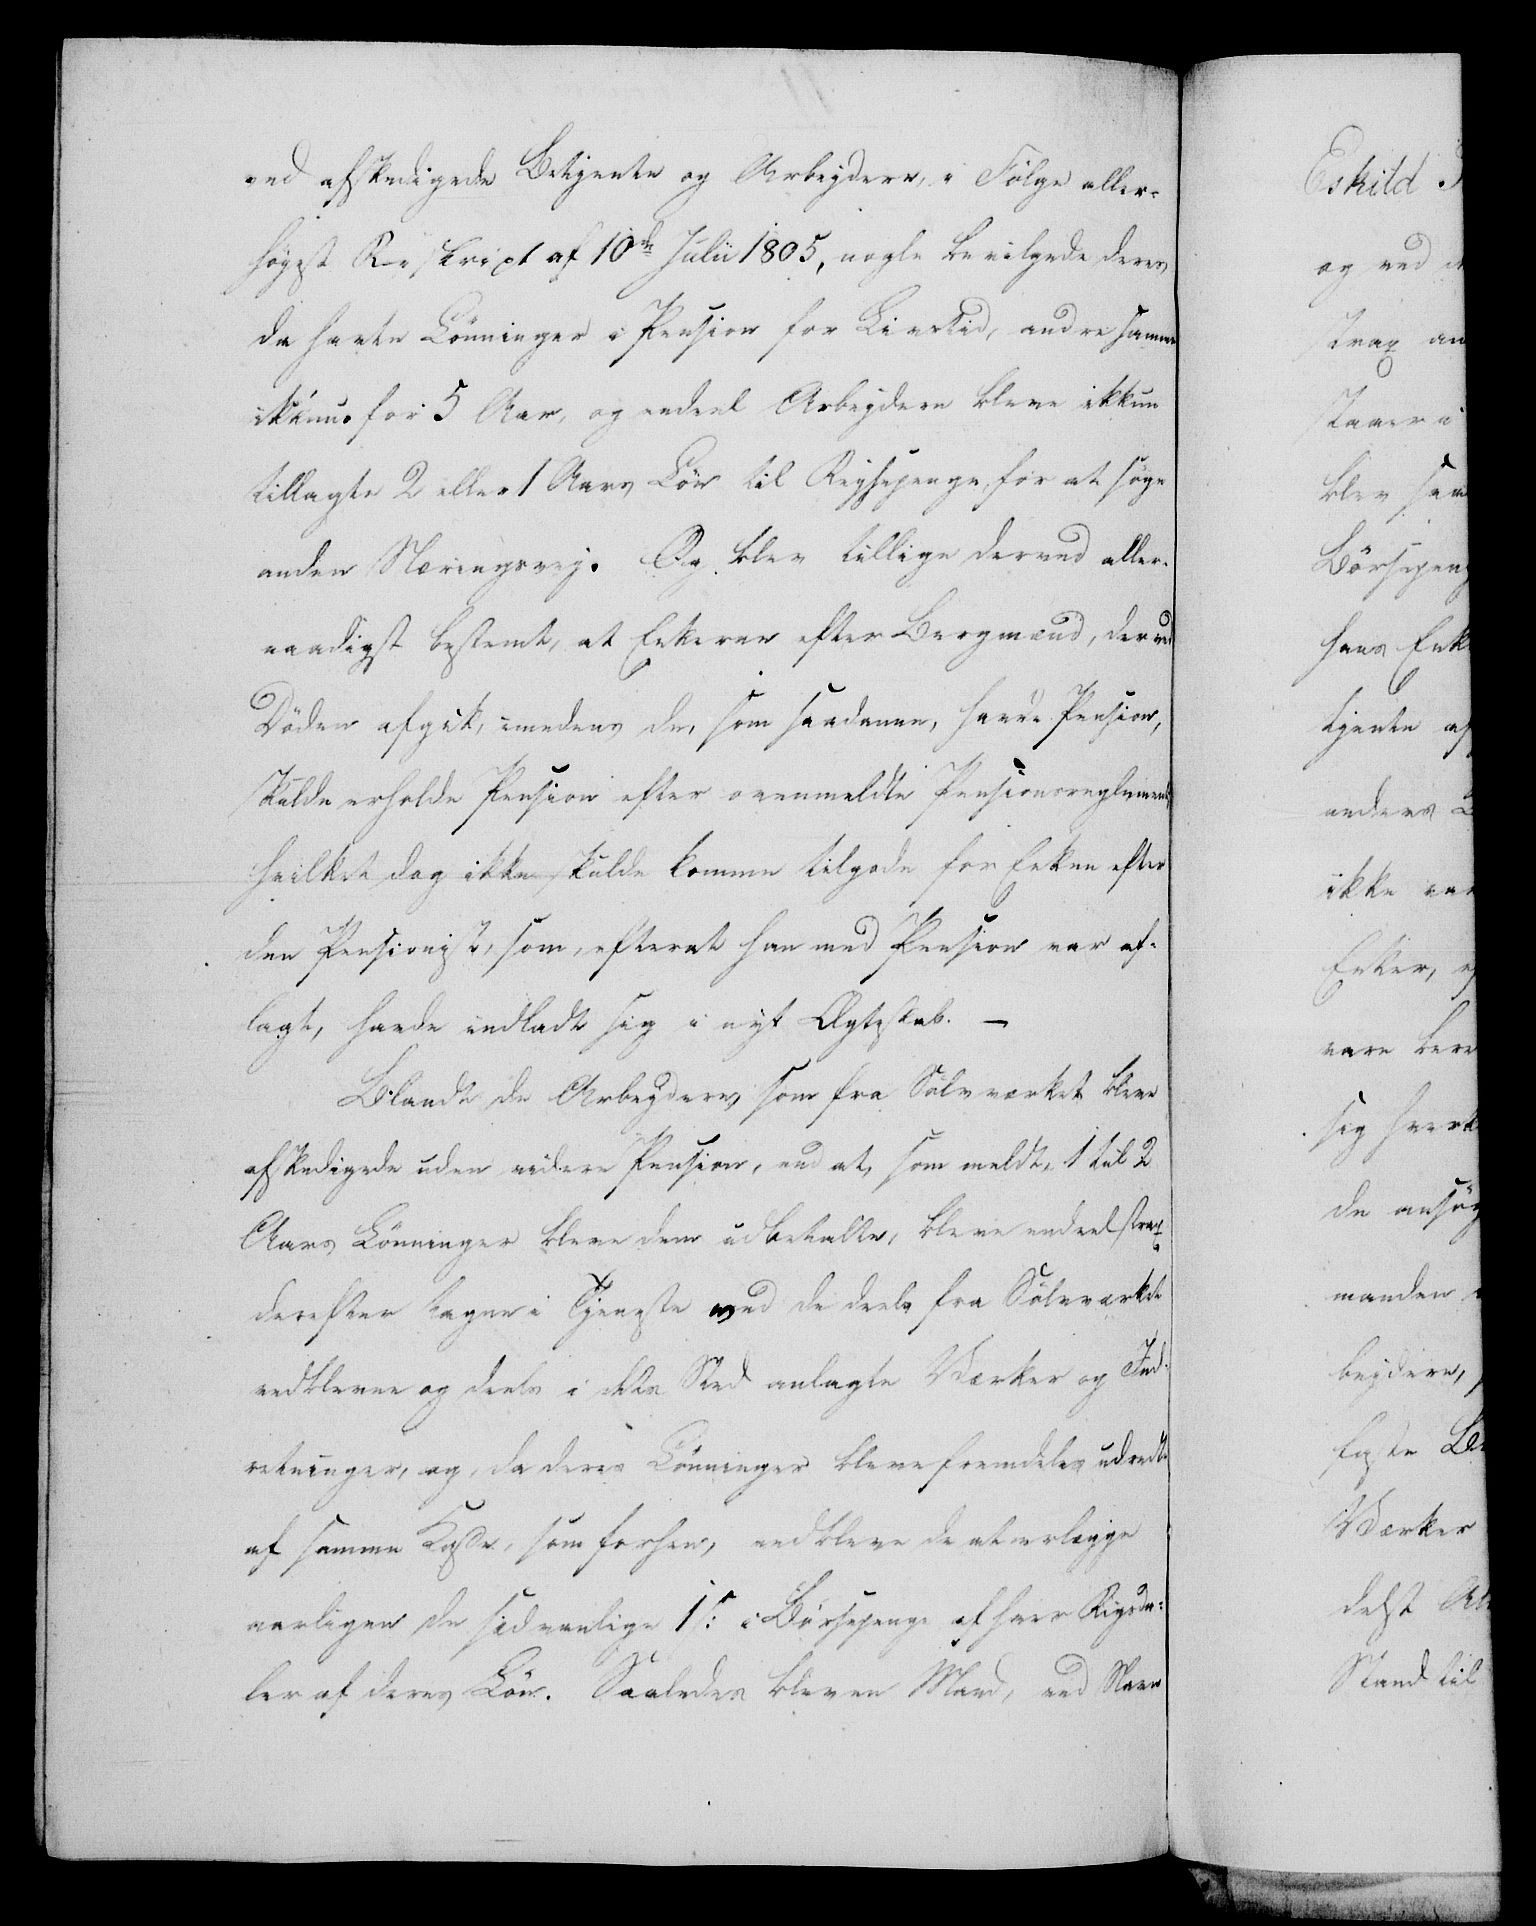 ved afskedigede Betjente og Arbeydere, i Følge aller-
høyst Reskript af 10de Julii 1805, nogle bevilgede deres
da havte Lønninger i Pension for Livstid, andre samme
ikkuns for 5 Aar, og endeel Arbeydere bleve ikkun
tillagte 2 eller 1 Aars Løn til Reysepenge, for at søge
anden Næringsvej. Og blev tillige derved aller-
naadigst bestemt, at Enkerne efter Bergmænd, der ved
Døden afgik, imedens de, som saadanne, havde Pension,
skulde erholde Pension efter ovenmeldte Pensionsreglement
hvilket dog ikke skulde komme tilgode for Enken efter
den Pensionist, som, efterat han med Pension var af-
lagt, havde indladt sig i nyt Ægteskab. —
Blandt de Arbeydere, som fra Sølvværket bleve
afskedigede uden videre Pension, end at, som meldt, 1 til 2
Aars Lønninger bleve dem udbetalte, bleve endeel strax
derefter tagne i Tjeneste ved de deels fra Sølvværket
vedblevne og deels i dets Sted anlagte Værker og Ind-
retninger, og, da deres Lønninger bleve fremdeles udredte
af samme Kasse, som forhen, vedbleve de at erlægge
aarligen de sædvanlige 1 s: i Børsepenge af hver Rigsda-
ler af deres Løn. Saaledes blev en Mand, ved Navn
Eskild
og ved
strax an
staaer i
blev saa
Børsepeng
hans Enk
tjente af
anders
ikke var
Enker, ef
vare bere
sig hverk
de ansøg
manden
beydere,
faste Be
Værker
delst Ar
Stand til